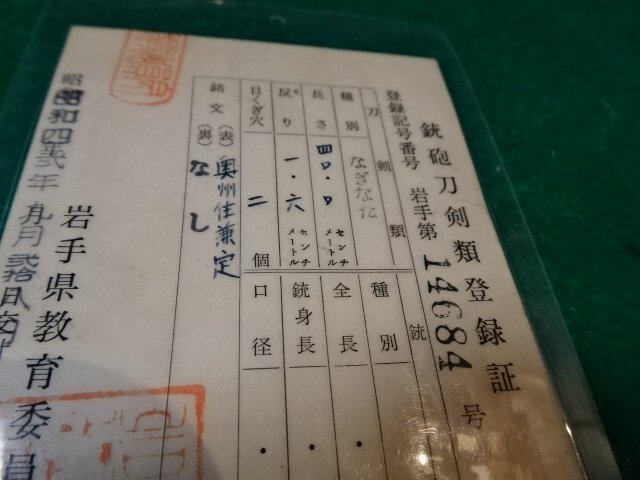 銃砲刀剣類登録証
登録記号番号 岩手第14684号
刀剣類
種別 なぎなた
長さ 四〇・〇 センチメートル
反り 一・六 センチメートル
目くぎ穴 二 個
銘文 (表) 奥州住兼定
(裏) なし
銃
種別
全長 ・
銃身長 ・
口径 ・
昭和四 年九月弐拾八日交付
岩手県教育委員